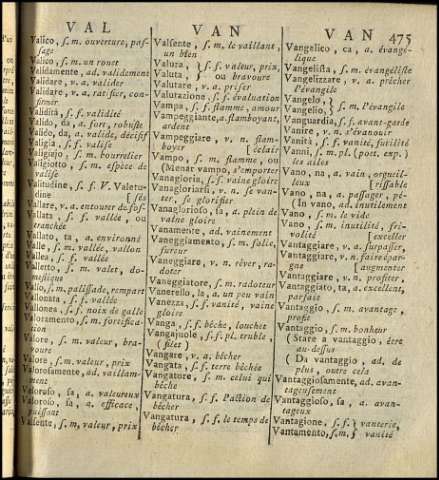 VAL
VAN
VAN 475
Valico, s. m. ouverture, pas-
sage
Valico, s. m. un rouet
Validamente, ad. validement
Validare, v. a. valider
Validare, v. a. ratifier, con-
firmer
Validità, s. f. validité
Valido, da, a. fort, robuste
Valido, da, a. valide, décisif
Valigia, s. f. valise
Valigiajo, s. m. bourrelier
Valigiotto, s. m. espèce de
valise
Valitudine, s. f. V. Valetu-
dine [sés
Vallare, v. a. entourer de fos-
Vallata, s. f. vallée, ou
tranchée
Vallato, ta, a. environné
Valle, s. m. vallée, vallon
Vallea, s. f. vallée
Valletto, s. m. valet, do-
mestique
Vallo, s. m. palissade, rempart
Vallonata, s. f. vallée
Vallonea, s. f. noix de galle
Valoramento, s. m. fortifica-
tion
Valore, s. m. valeur, bra-
voure
Valore, s. m. valeur, prix
Valorosamente, ad. vaillam-
ment
Valoroso, sa, a. valeureux
Valoroso, sa, a. efficace,
puissant
Valsente, s. m, valeur, prix
Valsente, s. m. le vaillant,
un bien
Valura, } s. f. valeur, prix,
Valuta, } ou bravoure
Valutare, v. a. priser
Valutazione, s. f. évaluation
Vampa, s. f. flamme, amour
Vampeggiante, a. flamboyant,
ardent
Vampeggiare, v. n. flam-
boyer [éclair
Vampo, s. m. flamme, ou
(Menar vampo, s'emporter
Vanagloria, s. f. vaine gloire
Vanagloriarsi, v. n. se van-
ter, se glorifier
Vanaglorioso, sa, a. plein de
vaine gloire
Vanamente, ad. vainement
Vaneggiamento, s. m. folie,
fureur
Vaneggiare, v. n. rêver, ra-
doter
Vaneggiatore, s. m. radoteur
Vanerello, la, a. un peu vain
Vanezza, s. f. vanité, vaine
gloire
Vanga, s. f. bêche, louchet
Vangajuole, s. f. pl. truble,
( filet )
Vangare, v. a. bêcher
Vangata, s. f. terre bêchée
Vangatore, s. m. celui qui
bêche
Vangatura, s. f. l'action de
bêcher
Vangatura, s. f. le temps de
bêcher
Vangelico, ca, a. évangé-
lique
Vangelista, s. m. évangéliste
Vangelizzare, v. a. prêcher
l'évangile
Vangelo, } s. m. l'évangile
Vangelio, }
Vanguardia, s. f. avant-garde
Vanire, v. n. s'évanouir
Vanità, s. f. vanité, futilité
Vanni, s. m. pl. (poet. exp.)
les ailes
Vano, na, a. vain, orgueil-
leux [rissable
Vano, na, a. passager, pé-
(In vano, ad. inutilement
Vano, s. m. le vide
Vano, s. m. inutilité, fri-
volité [exceller
Vantaggiare, v. a. surpasser,
Vantaggiare, v. n. faire épar-
gne [augmenter
Vantaggiare, v. n. profiter,
Vantaggiato, ta, a. excellent,
parfait
Vantaggio, s. m. avantage,
profit
Vantaggio, s. m. bonheur
( Stare a vantaggio, être
au-dessus
( Da vantaggio, ad. de
plus, outre cela
Vantaggiosamente, ad. avan-
tageusement
Vantaggioso, sa, a. avan-
tageux
Vantagione, s. f. } vanterie,
Vantamento, s. m. } vanité